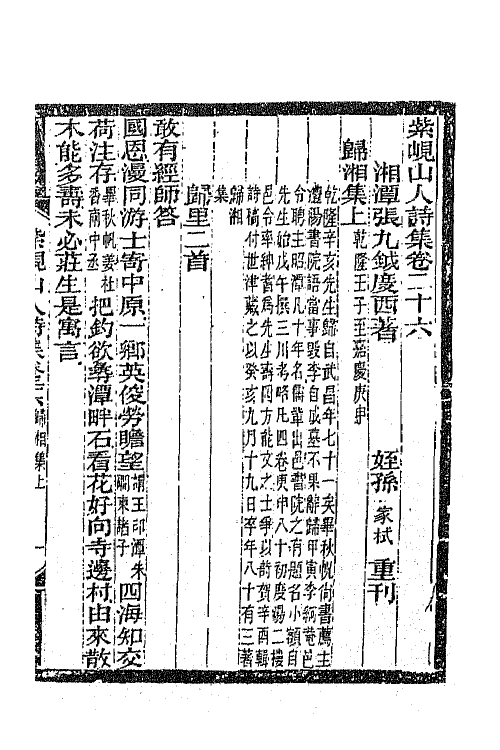 紫峴山人詩集卷二十六
湘潭張九鉞度西著 姪孫家栻重刊
歸湘集上 乾隆壬子至嘉慶庚申
乾隆辛亥先生歸自武昌年七十一矣畢秋帆尚書薦主
澧陽書院語當事毀李自成墓不果辭歸甲寅李菴邑
令聘主昭潭凡十年名儁輩出邑院之有題名小額自
先生始戊午撰三川考略凡四卷庚申八十初度湯二樓
邑令率紳耆為先生壽四方能文之士爭以詩賀辛酉輯
詩稿付世律藏之以癸亥九月十九日卒年八十有三著
歸湘
集
歸里二首
敢有經師答
國恩漫同游士寄中原一鄉英俊勞瞻望謂王印潭朱闌東諸子四海知交
荷注存畢秋帆姜杜香南中丞把釣欲尋潭畔石看花好向寺邊村由來散
木能多壽未必莊生是寓言
紫峴山人詩集卷二六 歸湘集上 一